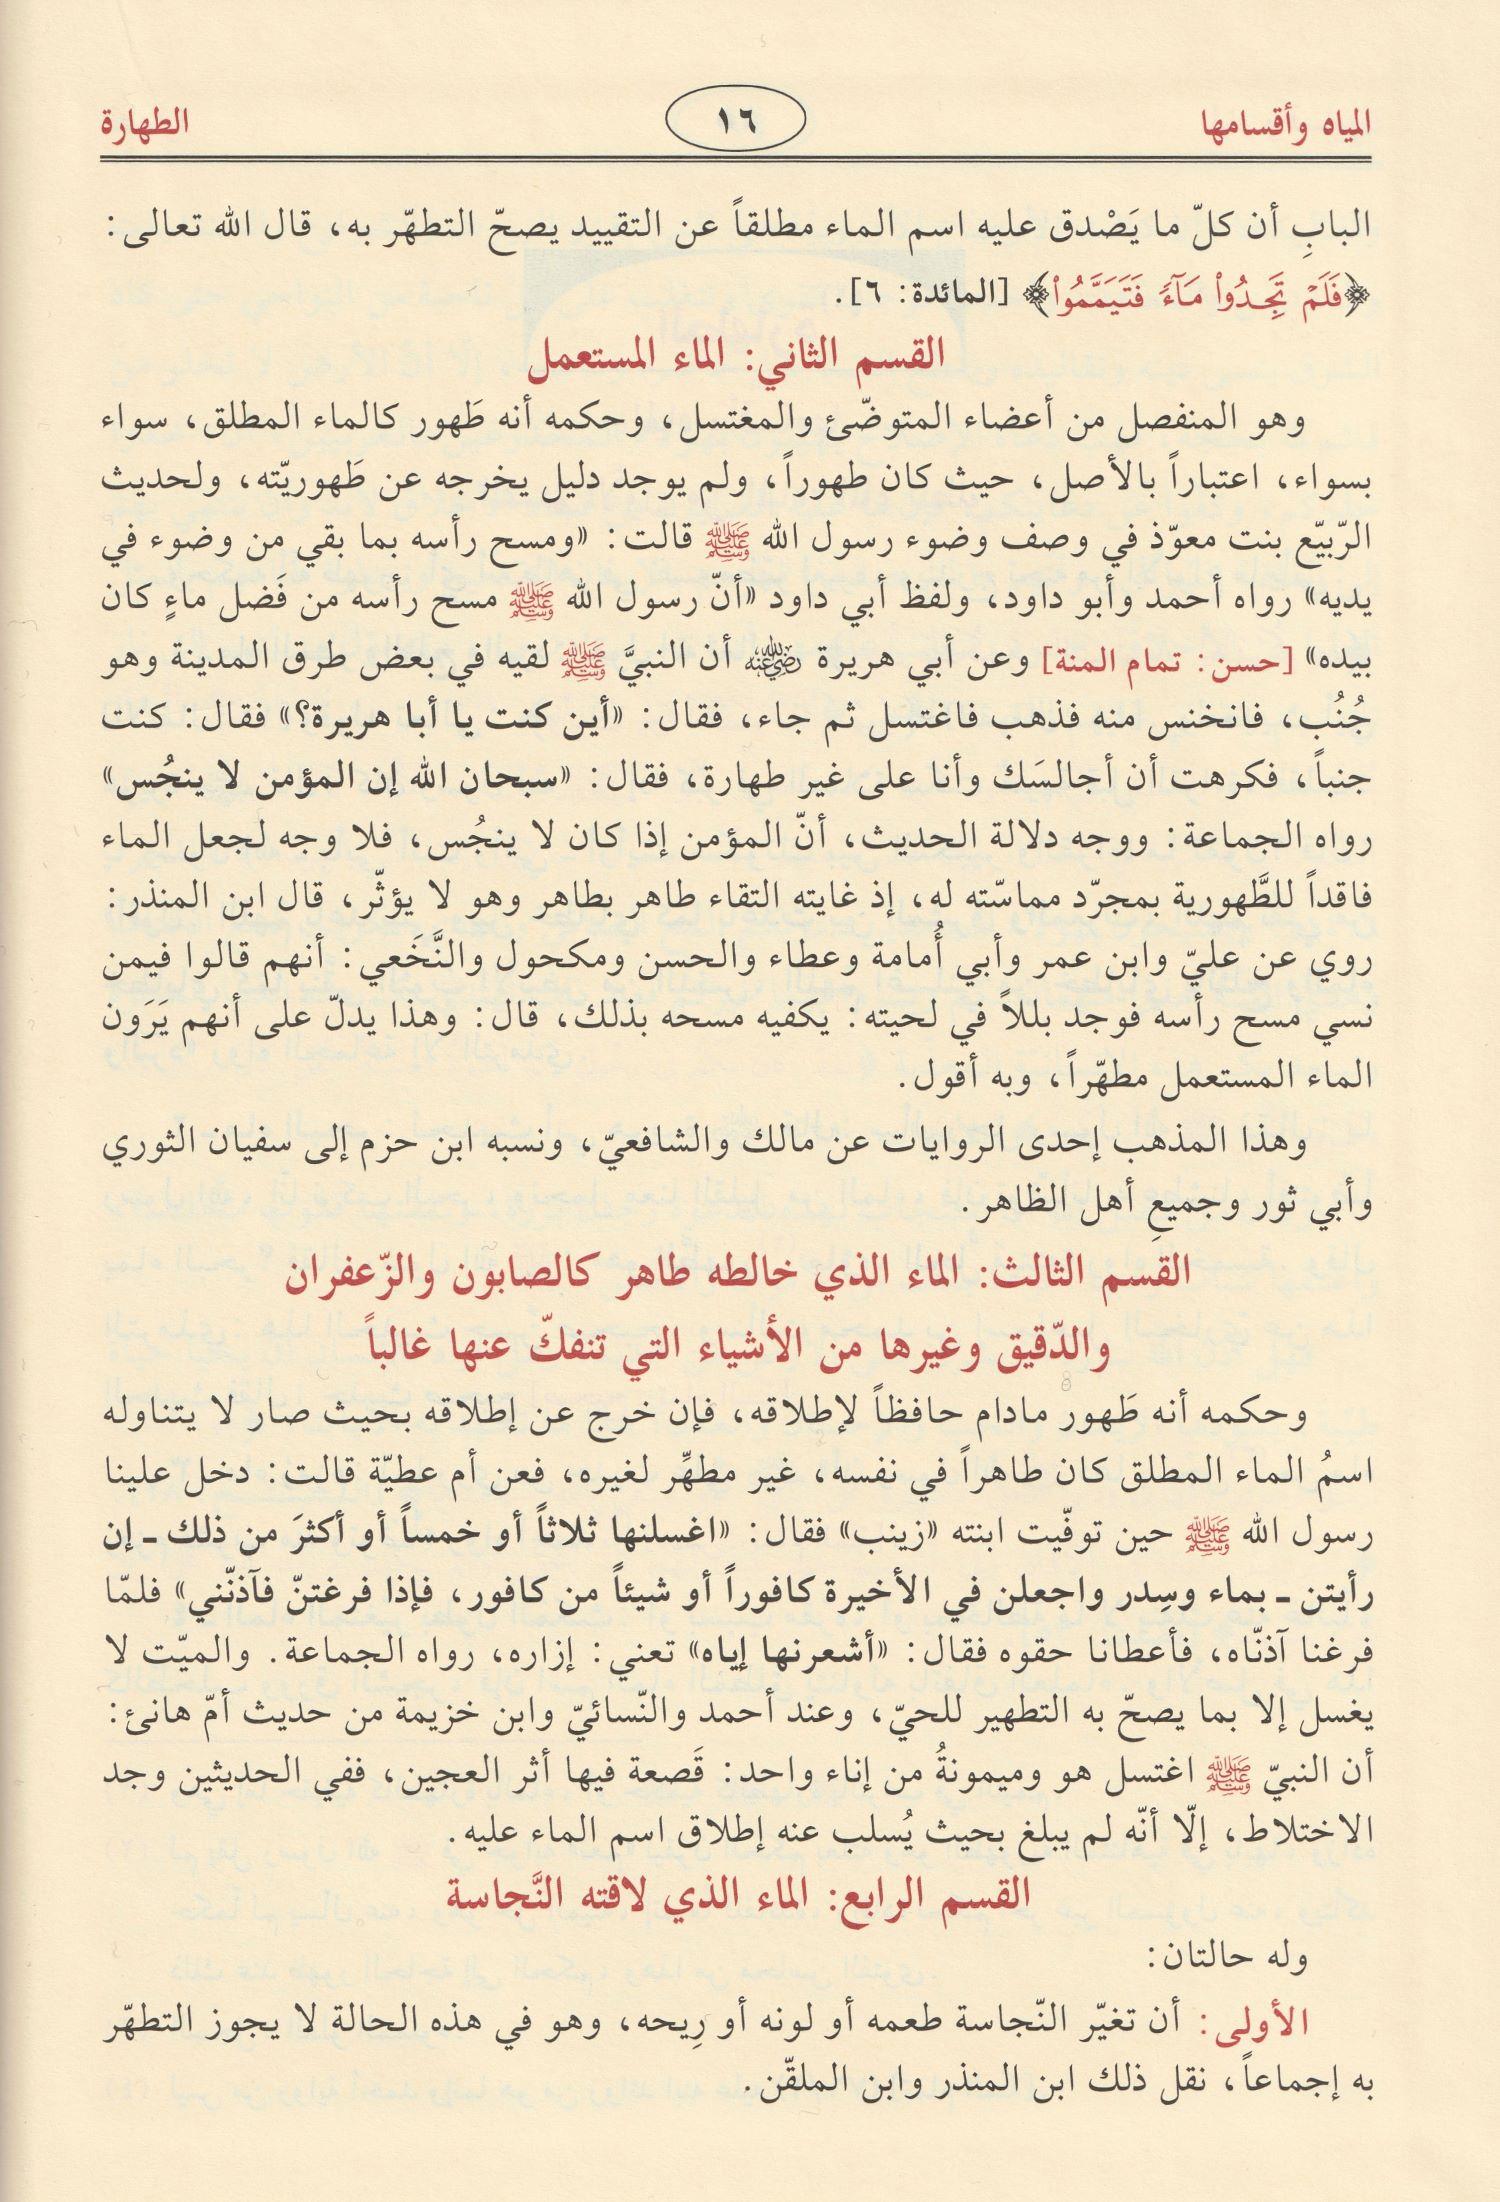 المياه وأقسامها
١٦
الطهارة
البابِ أن كلّ ما يَصْدق عليه اسم الماء مطلقاً عن التقييد يصحّ التطهّر به، قال الله تعالى:
﴿فَلَمْ تَجِدُواْ مَآءً فَتَيَمَّمُواْ﴾ [المائدة: ٦].
القسم الثاني: الماء المستعمل
وهو المنفصل من أعضاء المتوضّئ والمغتسل، وحكمه أنه طَهور كالماء المطلق، سواء
بسواء، اعتباراً بالأصل، حيث كان طهوراً، ولم يوجد دليل يخرجه عن طَهوريّته، ولحديث
الرّبيّع بنت معوّذ في وصف وضوء رسول الله ﷺ قالت: «ومسح رأسه بما بقي من وضوء في
يديه» رواه أحمد وأبو داود، ولفظ أبي داود «أنّ رسول الله ﷺ مسح رأسه من فَضل ماءٍ كان
بيده» [حسن: تمام المنة] وعن أبي هريرة رضي الله عنه أن النبيَّ ﷺ لقيه في بعض طرق المدينة وهو
جُنُب، فانخنس منه فذهب فاغتسل ثم جاء، فقال: «أين كنت يا أبا هريرة؟» فقال: كنت
جنباً، فكرهت أن أجالسَك وأنا على غير طهارة، فقال: «سبحان الله إن المؤمن لا ينجُس»
رواه الجماعة: ووجه دلالة الحديث، أنّ المؤمن إذا كان لا ينجُس، فلا وجه لجعل الماء
فاقداً للطَّهورية بمجرّد مماسّته له، إذ غايته التقاء طاهر بطاهر وهو لا يؤثّر، قال ابن المنذر:
روي عن عليّ وابن عمر وأبي أُمامة وعطاء والحسن ومكحول والنَّخَعي: أنهم قالوا فيمن
نسي مسح رأسه فوجد بللاً في لحيته: يكفيه مسحه بذلك، قال: وهذا يدلّ على أنهم يَرَون
الماء المستعمل مطهّراً، وبه أقول.
وهذا المذهب إحدى الروايات عن مالك والشافعيّ، ونسبه ابن حزم إلى سفيان الثوري
وأبي ثور وجميعِ أهل الظاهر.
القسم الثالث: الماء الذي خالطه طاهر كالصابون والزّعفران
والدّقيق وغيرها من الأشياء التي تنفكّ عنها غالباً
وحكمه أنه طَهور مادام حافظاً لإطلاقه، فإن خرج عن إطلاقه بحيث صار لا يتناوله
اسمُ الماء المطلق كان طاهراً في نفسه، غير مطهِّر لغيره، فعن أم عطيّة قالت: دخل علينا
رسول الله ﷺ حين توفّيت ابنته «زينب» فقال: «اغسلنها ثلاثاً أو خمساً أو أكثرَ من ذلك ـ إن
رأيتن ـ بماء وسِدر واجعلن في الأخيرة كافوراً أو شيئاً من كافور، فإذا فرغتنّ فآذنّني» فلمّا
فرغنا آذنّاه، فأعطانا حقوه فقال: «أشعرنها إياه» تعني: إزاره، رواه الجماعة. والميّت لا
يغسل إلا بما يصحّ به التطهير للحيّ، وعند أحمد والنّسائيّ وابن خزيمة من حديث أمّ هانئ:
أن النبيّ ﷺ اغتسل هو وميمونةُ من إناء واحد: قَصعة فيها أثر العجين، ففي الحديثين وجد
الاختلاط، إلّا أنّه لم يبلغ بحيث يُسلب عنه إطلاق اسم الماء عليه.
القسم الرابع: الماء الذي لاقته النَّجاسة
وله حالتان:
الأولى: أن تغيّر النّجاسة طعمه أو لونه أو رِيحه، وهو في هذه الحالة لا يجوز التطهّر
به إجماعاً، نقل ذلك ابن المنذر وابن الملقّن.